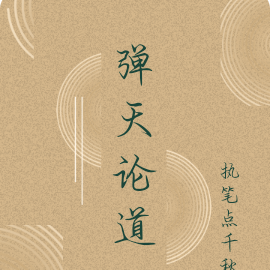 弹天论道
执笔点千秋